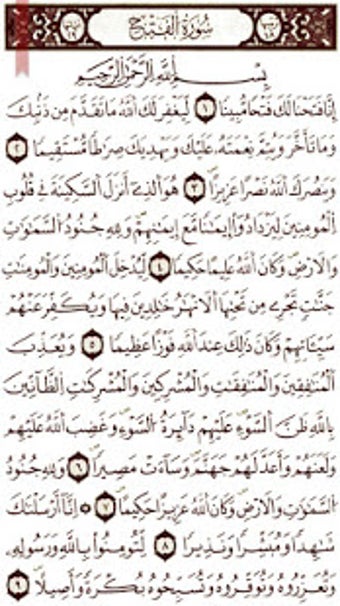 سُورَةُ الْفَتْحِ
بِسْمِ اللَّهِ الرَّحْمَٰنِ الرَّحِيمِ
إِنَّا فَتَحْنَا لَكَ فَتْحاً مُّبِيناً ١ لِّيَغْفِرَ لَكَ اَللَّهُ مَا تَقَدَّمَ مِن ذَنۢبِكَ
وَمَا تَأَخَّرَ وَيُتِمَّ نِعْمَتَهُۥ عَلَيْكَ وَيَهْدِيَكَ صِرَٰطاً مُّسْتَقِيماً ٢
وَيَنصُرَكَ اَللَّهُ نَصْراً عَزِيزاً ٣ هُوَ اَلذِےٓ أَنزَلَ اَلسَّكِينَةَ فِے قُلُوبِ
اِلْمُومِنِينَ لِيَزْدَادُوٓاْ إِيمَٰناً مَّعَ إِيمَٰنِهِمْ وَلِلهِ جُنُودُ اُلسَّمَٰوَٰتِ
وَالَارْضِ وَكَانَ اَللَّهُ عَلِيماً حَكِيماً ٤ لِّيُدْخِلَ اَلْمُومِنِينَ وَالْمُومِنَٰتِ
جَنَّٰتٍ تَجْرِے مِن تَحْتِهَا اَلَانْهَٰرُ خَٰلِدِينَ فِيهَا وَيُكَفِّرَ عَنْهُمْ
سَيِّـَٔاتِهِمْ وَكَانَ ذَٰلِكَ عِندَ اَللَّهِ فَوْزاً عَظِيماً ٥ وَيُعَذِّبَ
اَلْمُنَٰفِقِينَ وَالْمُنَٰفِقَٰتِ وَالْمُشْرِكِينَ وَالْمُشْرِكَٰتِ اِلظَّآنِّينَ
بِاللَّهِ ظَنَّ اَلسَّوْءِ عَلَيْهِمْ دَآئِرَةُ اُلسَّوْءِ وَغَضِبَ اَللَّهُ عَلَيْهِمْ
وَلَعَنَهُمْ وَأَعَدَّ لَهُمْ جَهَنَّمَ وَسَآءَتْ مَصِيراً ٦ وَلِلهِ جُنُودُ
اُلسَّمَٰوَٰتِ وَالَارْضِ وَكَانَ اَللَّهُ عَزِيزاً حَكِيماً ٧ ۞ اِنَّآ أَرْسَلْنَٰكَ
شَٰهِداً وَمُبَشِّراً وَنَذِيراً ٨ لِّتُومِنُواْ بِاللَّهِ وَرَسُولِهِۦ
وَتُعَزِّرُوهُ وَتُوَقِّرُوهُ وَتُسَبِّحُوهُ بُكْرَةً وَأَصِيلاً ٩